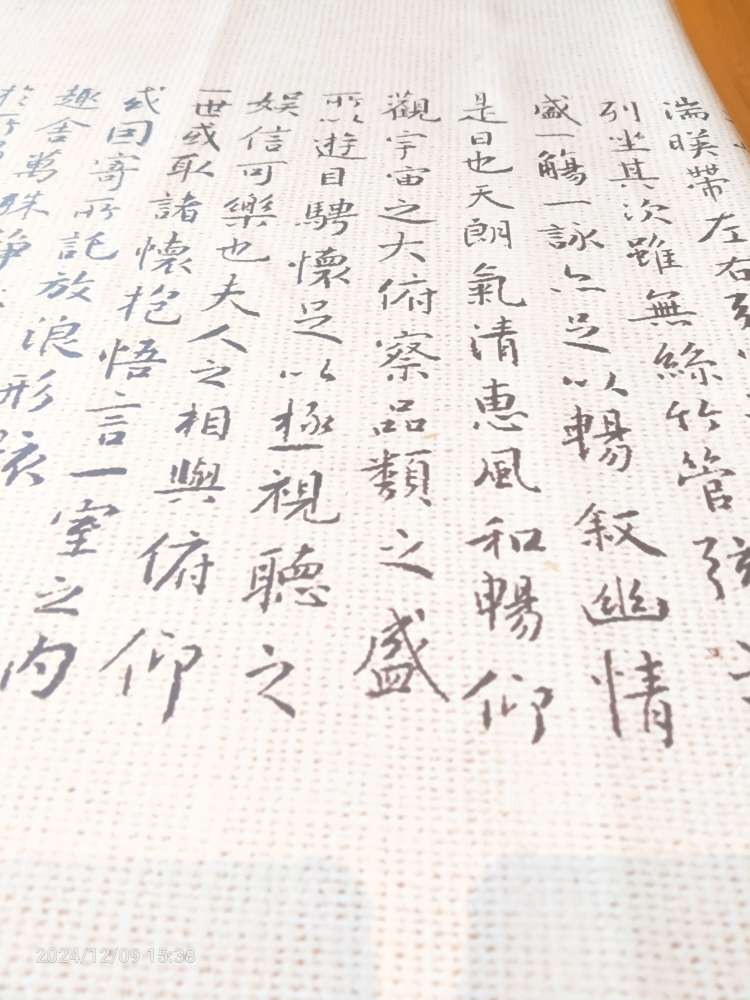 湍暎帶左右引
列坐其次雖無絲竹管弦之
盛一觴一詠亦足以暢叙幽情
是日也天朗氣清惠風和暢仰
觀宇宙之大俯察品類之盛
所以遊目騁懷足以極視聽之
娛信可樂也夫人之相與俯仰
一世或取諸懷抱悟言一室之内
或因寄所託放浪形骸
趣舍萬殊静
於所
2024/12/09 15:38